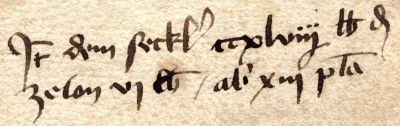 It dem seckl' ccxlviij lb d
zelon vj lb / ab' xiij